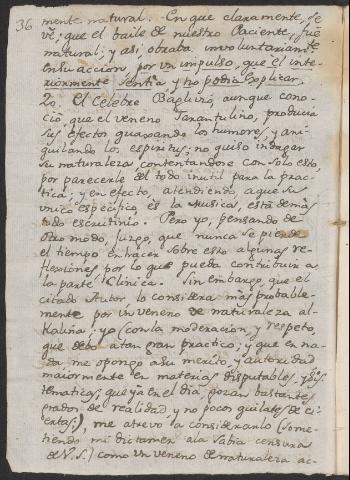 36 mente natural. En que claramente, se
ve, que el baile de nuestro Paciente, fué
natural; y asi, obraba involuntariamte
en su accion por un impulso, que el inte-
riormente sentia y no podia explicar.
20. El Célebre Baglivio, aunque cono-
ció, que el veneno Tarantulino, producia
sus efectos quaxando los humores, y ani-
quilando los espiritus; no quiso indagar
su naturaleza, contentandose con solo esto,
por parecerle del todo inutil para la prac-
tica; y en efecto, atendiendo a que su
unico especifico es la Musica, está demás
todo escrutinio. Pero yo, pensando de
otro modo, juzgo, que nunca se pierde
el tiempo en hacer sobre esto algunas re-
flexiones por lo que pueba contribuir a
la parte Klinica. Sin embargo, que el
citado Autor, lo considera más probable-
mente por un veneno de naturaleza al-
Kalina; yo (con la moderacion, y respeto,
que debo a tan gran practico; y que en na-
da me opongo a su merito, y autoridad
maiormente en materias disputables, y sis-
tematicas, que ya en el dia gozan bastantes
grados de realidad, y no pocos quilates de ci-
ertas;), me atrevo a considerarlo (some-
tiendo mi dictamen a la sabia censura
de V.S.) como un veneno de naturaleza ac-